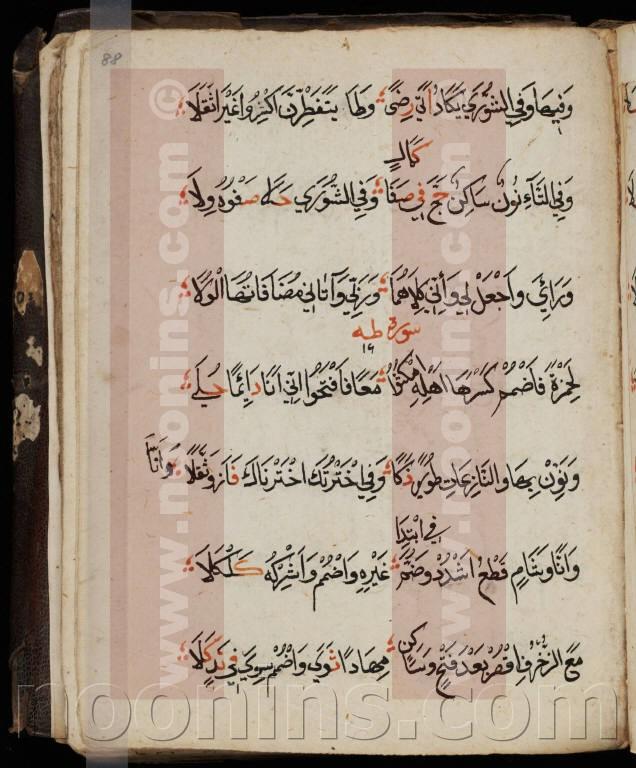 88
وَفِيهَا وَفِي الشُّورَى يَكَادُ أَتَى رِضًى ؛ وَطَا يَتَفَطَّرْنَ اكْسِرُوا غَيْرَ أَثْقَلَا ؛
كمال
وَفِي التَّاءِ نُونٌ سَاكِنٌ حَجَّ فِي صَفَا ؛ وَفِي الشُّورَى حَلَا صَفْوُهُ وِلَا ؛
وَرَائِيَ وَاجْعَلْ لِي وَإِنِّي كِلَاهُمَا ؛ وَرَبِّي وَآتَانِي مُضَافَاتُهَا الْوَلَا ؛
سورة طه
١٦
لِحَمْزَةَ فَاضْمُمْ كَسْرَهَا أَهْلِهِ امْكُثُوا ؛ مَعًا فَافْتَحُوا إِنِّي أَنَا دَائِمًا حُلَى
وَنَوِّنْ بِهَا وَالنَّازِعَاتِ طُوًى ذَكَا ؛ وَفِي اخْتَرْتُكَ اخْتَرْنَاكَ فَازَ وَثَقَّلَا ؛ وَأَنَّا
في ابْتِدَا
وَأَنَّا وَشَامٍ قَطْعُ أَشْدُدْ وَضُمَّ ؛ غَيْرِهِ وَاضْمُمْ وَأَشْرِكْهُ كَلْكَلَا ؛
مَعَ الزُّخْرُفِ اقْصُرْ بَعْدَ فَتْحٍ وَسَاكِنٍ ؛ مِهَادًا ثَوَى وَاضْمُمْ سِوًى فِي نَدٍ كَلَا ؛
www.noonins.com ©
www.noonins.com ©
noonins.com